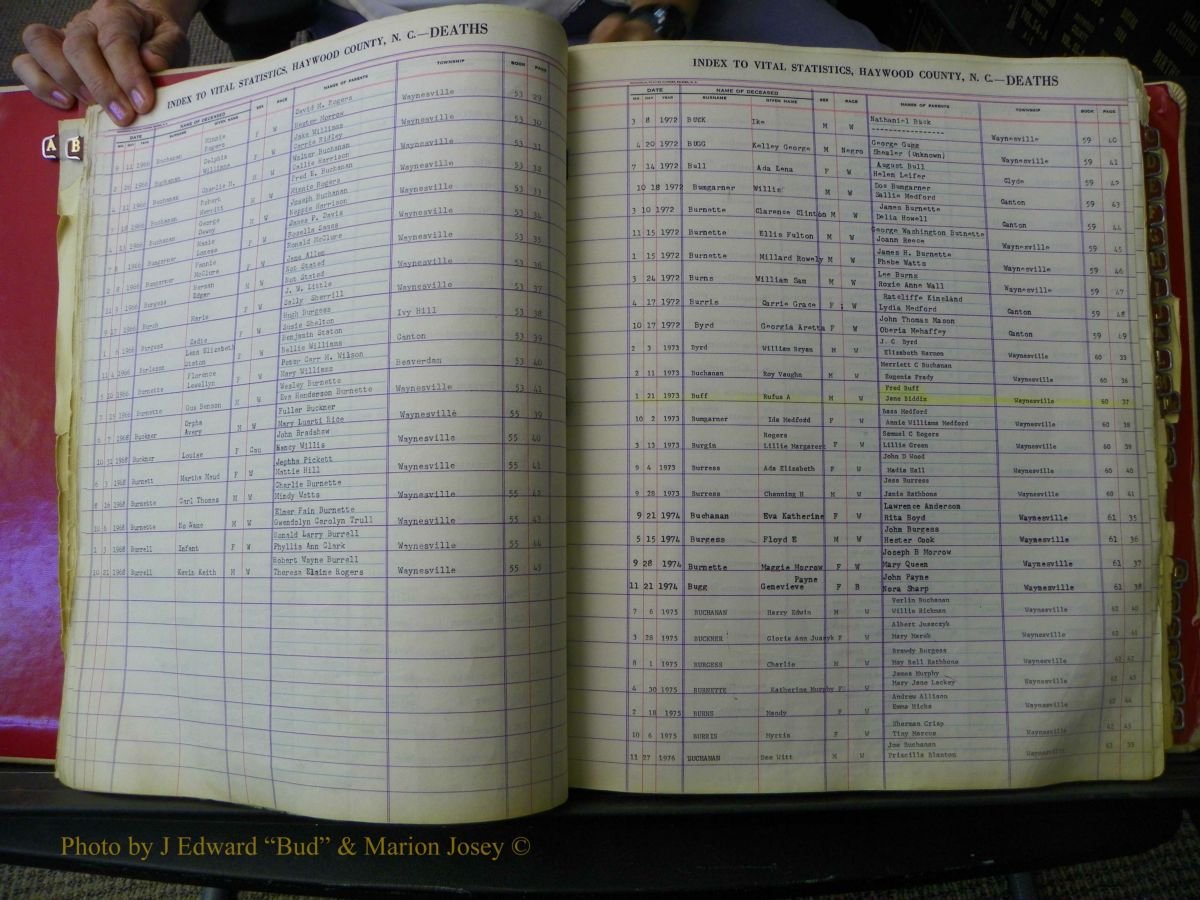 INDEX TO VITAL STATISTICS, HAYWOOD COUNTY, N. C.—DEATHS
DATE NAME OF DECEASED SEX RACE NAME OF PARENTS TOWNSHIP BOOK PAGE
MO. DAY YEAR SURNAME GIVEN NAME
David H. Rogers Waynesville 53 29
Minnie Rogers F W Hester Morrow
1966 Buchanan Delphia Williams F W Jake Williams Waynesville 53 30
Carrie Ridley
1966 Buchanan Charlie M. M W Walter Buchanan Waynesville 53 31
Callie Harrison
1966 Buchanan Robert Merritt M W Fred E. Buchanan Waynesville 53 32
Minnie Rogers
1966 Buchanan George Dewey M W Joseph Buchanan Waynesville 53 33
Nannie Harrison
1966 Bumgarner Mamie F W James P. Davis Waynesville 53 34
Rosella Sands
1966 Bumgarner Fannie McClure F W Ronald McClure Waynesville 53 35
Jane Allen
1966 Burgess Herman Edgar M W Not Stated Waynesville 53 36
Not Stated
1966 Burch Marie F W J. M. Little Waynesville 53 37
Sally Sherrill
1966 Burgess Sadie F W Hugh Burgess Ivy Hill 53 38
Susie Shelton
1966 Burleson Lena Elizabeth Staton F W Benjamin Staton Canton 53 39
Bellie Williams
1966 Burnette Florence Lewellyn F W Peter Carr M. Wilson Beaverdam 53 40
Mary Williams
1966 Burnette Gus Benson M W Wesley Burnette Waynesville 53 41
Eva Henderson Burnette
1968 Buckner Orpha Avery M W Fuller Buckner Waynesville 55 39
Mary Luarti Rice
10 31 1968 Buckner Louise F Cau John Bradshaw Waynesville 55 40
Nancy Willis
6 3 1968 Burnett Martha Maud F W Jeptha Pickett Waynesville 55 41
Mattie Hill
8 16 1968 Burnette Carl Thomas M W Charlie Burnette Waynesville 55 42
Mindy Watts
10 6 1968 Burnette No Name M W Elmer Fain Burnette Waynesville 55 43
Gwendolyn Carolyn Trull
1 3 1968 Burrell Infant F W Ronald Larry Burrell Waynesville 55 44
Phyllis Ann Clark
10 21 1968 Burrell Kevin Keith M W Robert Wayne Burrell Waynesville 55 45
Theresa Elaine Rogers
A B
INDEX TO VITAL STATISTICS, HAYWOOD COUNTY, N. C.—DEATHS
DATE NAME OF DECEASED SEX RACE NAME OF PARENTS TOWNSHIP BOOK PAGE
MO. DAY YEAR SURNAME GIVEN NAME
3 8 1972 BUCK Ike M W Nathaniel Buck Waynesville 59 40
-----------------
4 20 1972 BUGG Kelley George M Negro George Gugg Waynesville 59 41
Shealer (Unknown)
7 14 1972 Bull Ada Lena F W August Bull Clyde 59 42
Helen Leifer
10 18 1972 Bumgarner Willis M W Dos Bumgarner Canton 59 43
Sallie Medford
3 10 1972 Burnette Clarence Clinton M W James Burnette Canton 59 44
Delia Howell
11 15 1972 Burnette Ellis Fulton M W George Washington Butnette Waynesville 59 45
Joann Reece
1 15 1972 Burnette Millard Rowely M W James H. Burnette Waynesville 59 46
Phebe Watts
3 24 1972 Burns William Sam M W Lee Burns Waynesville 59 47
Roxie Anne Wall
4 17 1972 Burris Carrie Grace F W Ratcliffe Kineland Canton 59 48
Lydia Medford
10 17 1972 Byrd Georgia Aretta F W John Thomas Mason Canton 59 49
Oberia Mehaffey
2 3 1973 Byrd William Bryan M W J. C. Byrd Waynesville 60 35
Elizabeth Harmon
2 11 1973 Buchanan Roy Vaughn M W Merriett C Buchanan Waynesville 60 36
Eugenia Frady
1 21 1973 Buff Rufus A M W Fred Buff Waynesville 60 37
Jene Biddix
10 2 1973 Bumgarner Ida Medford F W Bass Medford Waynesville 60 38
Annie Williams Medford
3 13 1973 Burgin Rogers Lillie Margaret F W Samuel C Rogers Waynesville 60 39
Lillie Green
9 4 1973 Burress Ada Elizabeth F W John D Wood Waynesville 60 40
Madie Hall
9 28 1973 Burress Channing H M W Jess Burress Waynesville 60 41
Janie Rathbone
9 21 1974 Buchanan Eva Katherine F W Lawrence Anderson Waynesville 61 35
Rita Boyd
5 15 1974 Burgess Floyd E M W John Burgess Waynesville 61 36
Hester Cook
9 28 1974 Burnette Maggie Morrow F W Joseph B Morrow Waynesville 61 37
Mary Queen
11 21 1974 Bugg Genevieve Payne F B John Payne Waynesville 61 38
Nora Sharp
7 6 1975 BUCHANAN Harry Edwin M W Verlin Buchanan Waynesville 62 40
Willie Rickman
3 28 1975 BUCKNER Gloria Ann Juszyk F W Albert Juszczyk Waynesville
Mary Marek
8 1 1975 BURGESS Charlie M W Brawdy Burgess Waynesville 62 42
May Bell Rathbone
4 30 1975 BURNETTE Katherine Murphy F W James Murphy Waynesville 62 43
Mary Jane Lackey
2 18 1975 BURNS Mandy F W Andrew Allison Waynesville 62 44
Emma Hicks
10 6 1975 BURRIS Myrtis F W Sherman Crisp Waynesville 62 45
Tiny Marcus
11 27 1976 BUCHANAN Dee Witt M W Joe Buchanan Waynesville 63 35
Priscilla Blanton
Photo by J Edward “Bud” & Marion Josey ©